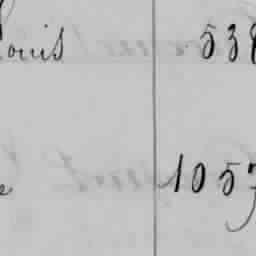 Louis 538
e 1057